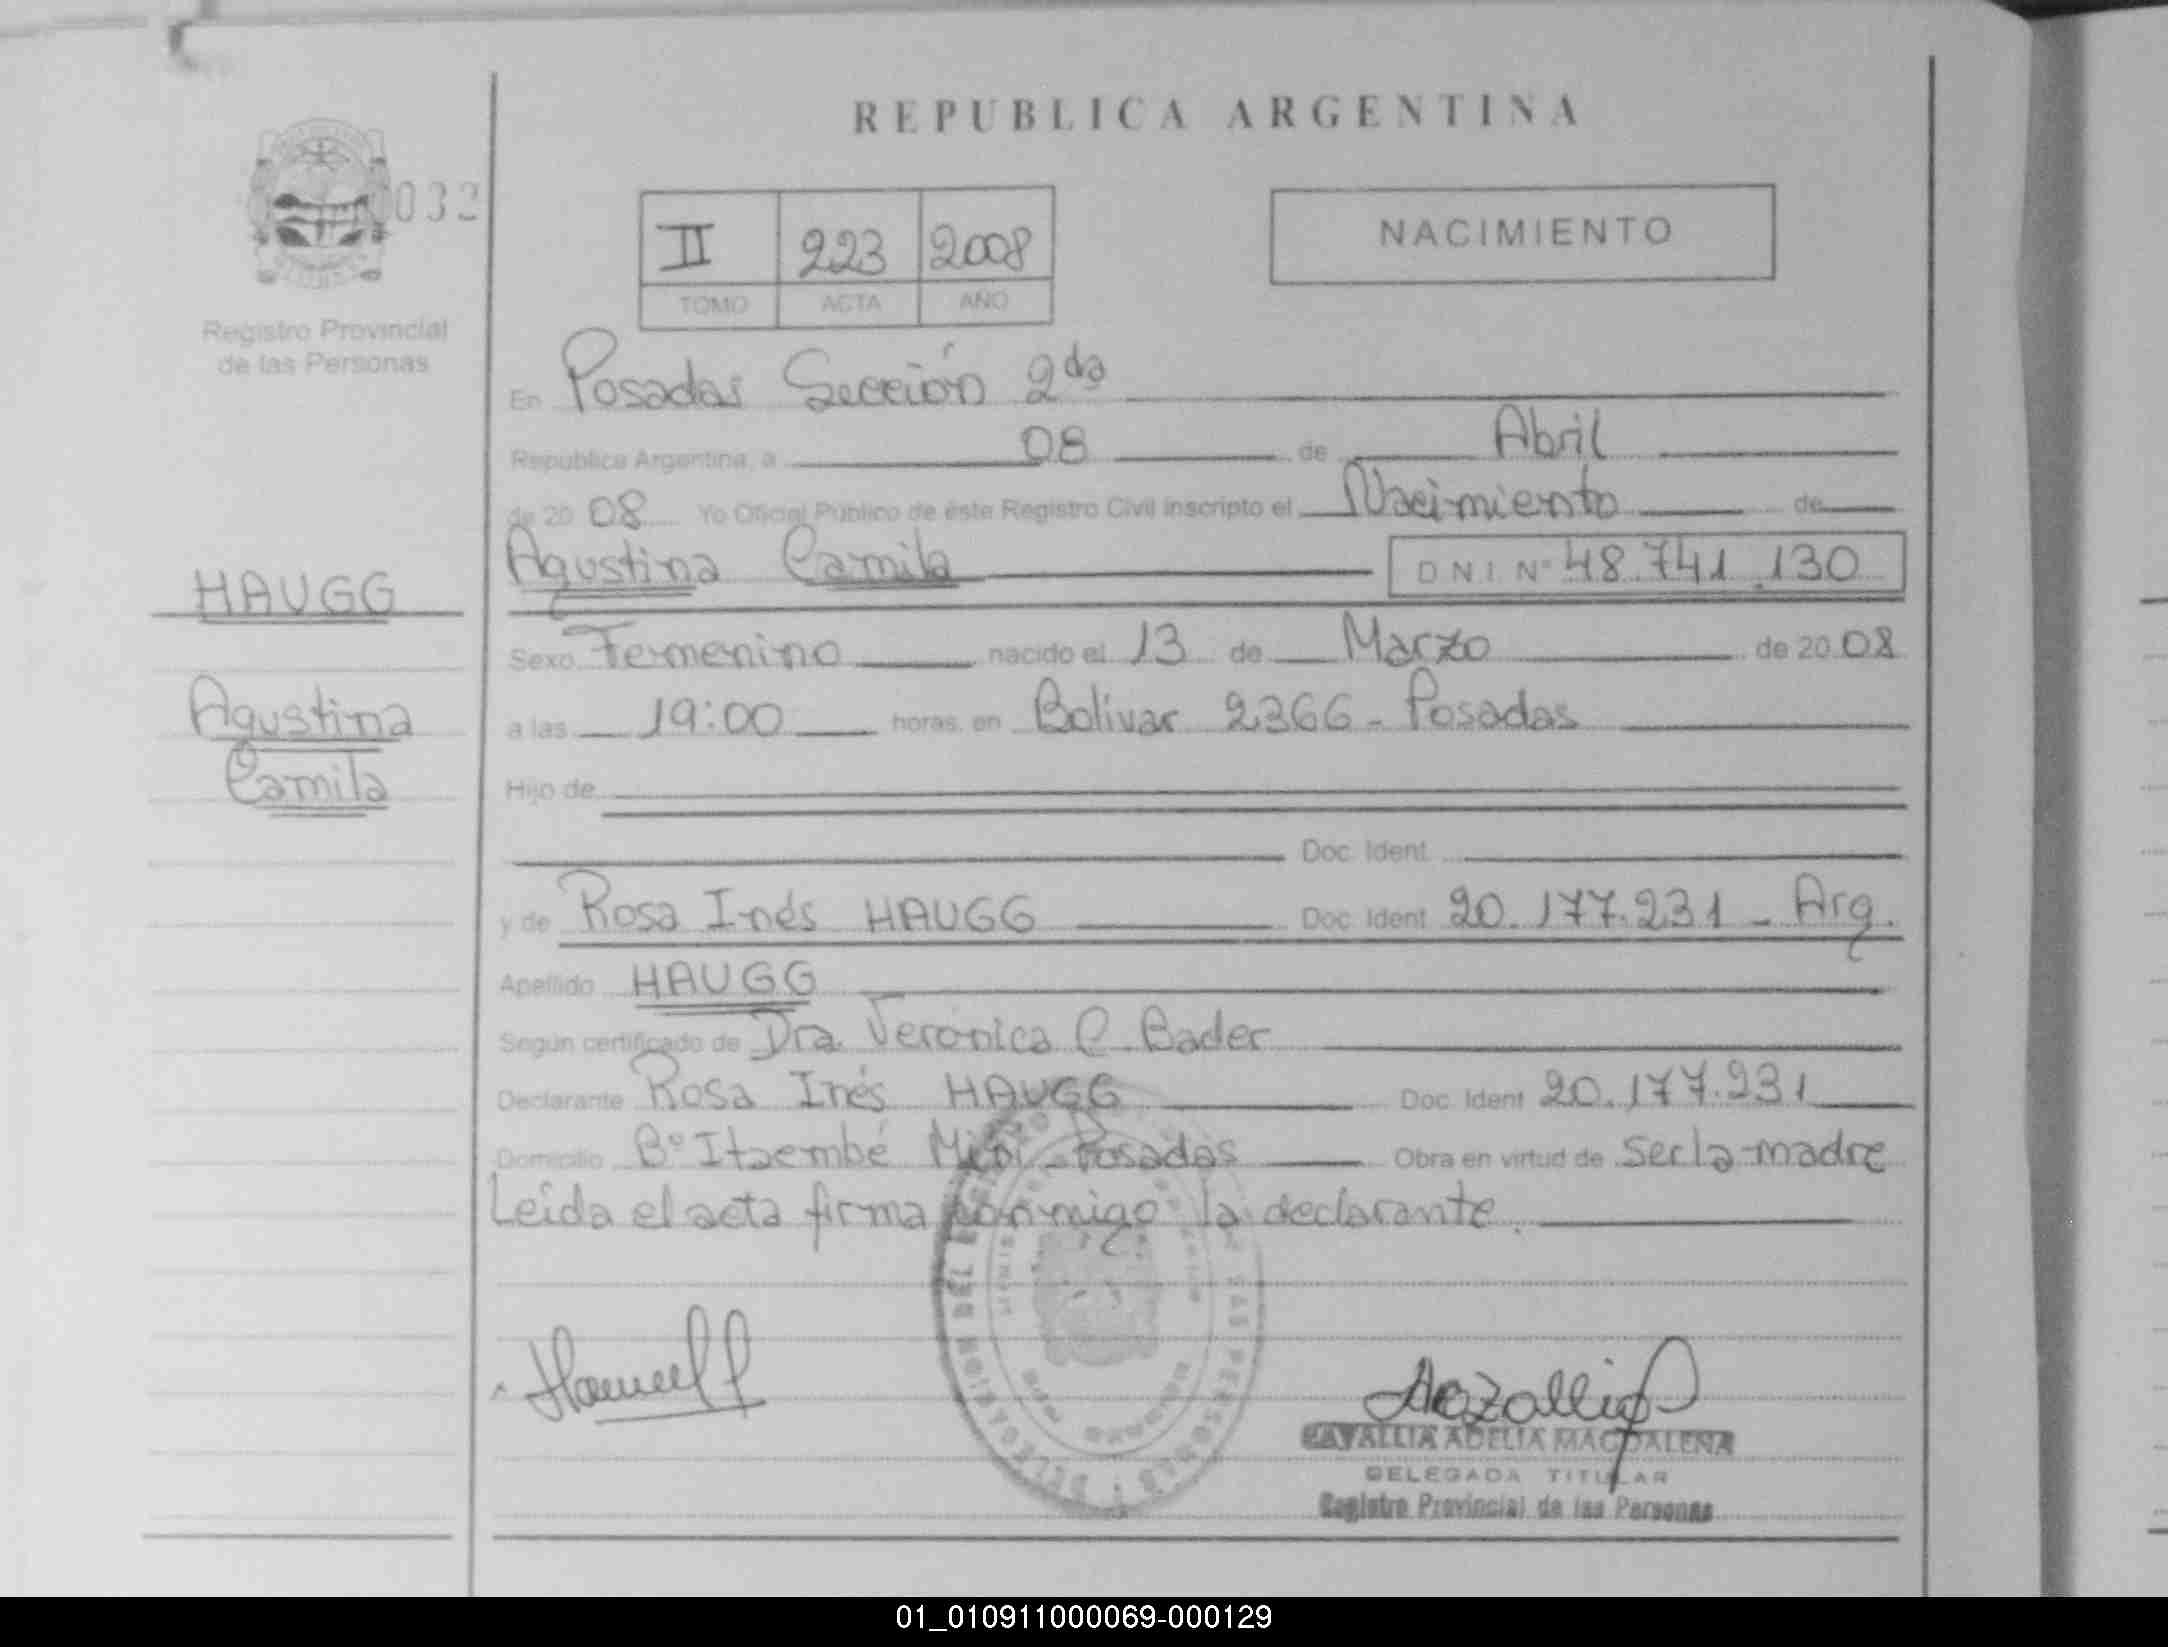 REPUBLICA ARGENTINA
032
II 223 2008
TOMO ACTA AÑO
NACIMIENTO
Registro Provincial
de las Personas
En Posadas Sección 2da
República Argentina, a 08 de Abril
de 2008 Yo Oficial Público de éste Registro Civil inscripto el Nacimiento de
HAUGG
Agustina Camila D N I Nº 48.741.130
Sexo Femenino nacido el 13 de Marzo de 2008
Agustina
Camila
a las 19:00 horas, en Bolivar 2366 - Posadas
Hijo de
Doc. Ident.
y de Rosa Inés HAUGG Doc. Ident. 20.177.231 - Arg.
Apellido HAUGG
Según certificado de Dra. Verónica C. Bader
Declarante Rosa Inés HAUGG Doc. Ident. 20.177.231
Domicilio Bº Itaembé Miní - Posadas Obra en virtud de ser la madre
Leída el acta firma conmigo la declarante.
CAVALLIA ADELIA MAGDALENA
DELEGADA TITULAR
Registro Provincial de las Personas
01_010911000069-000129